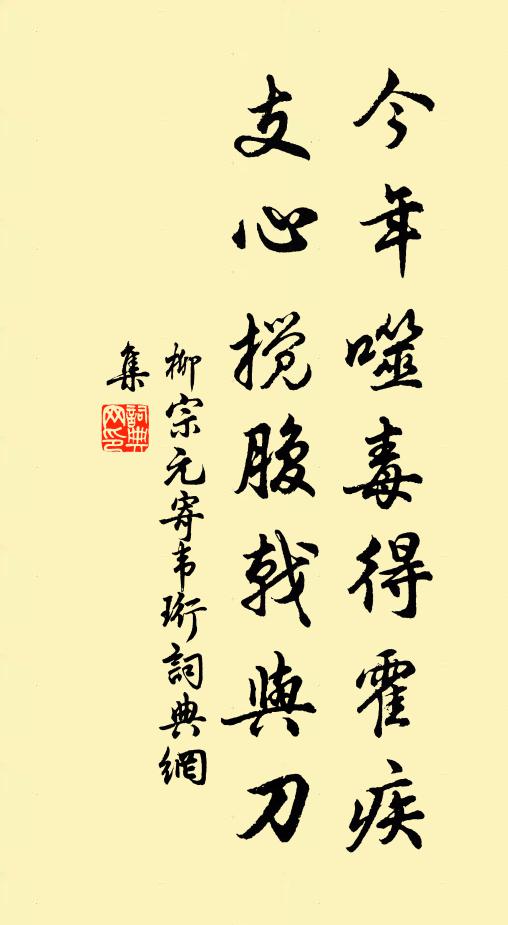 今年噬毒得霍疾
支心搅腹戟與刀
柳宗元寄韦珩詞典網
集
詞典
网印